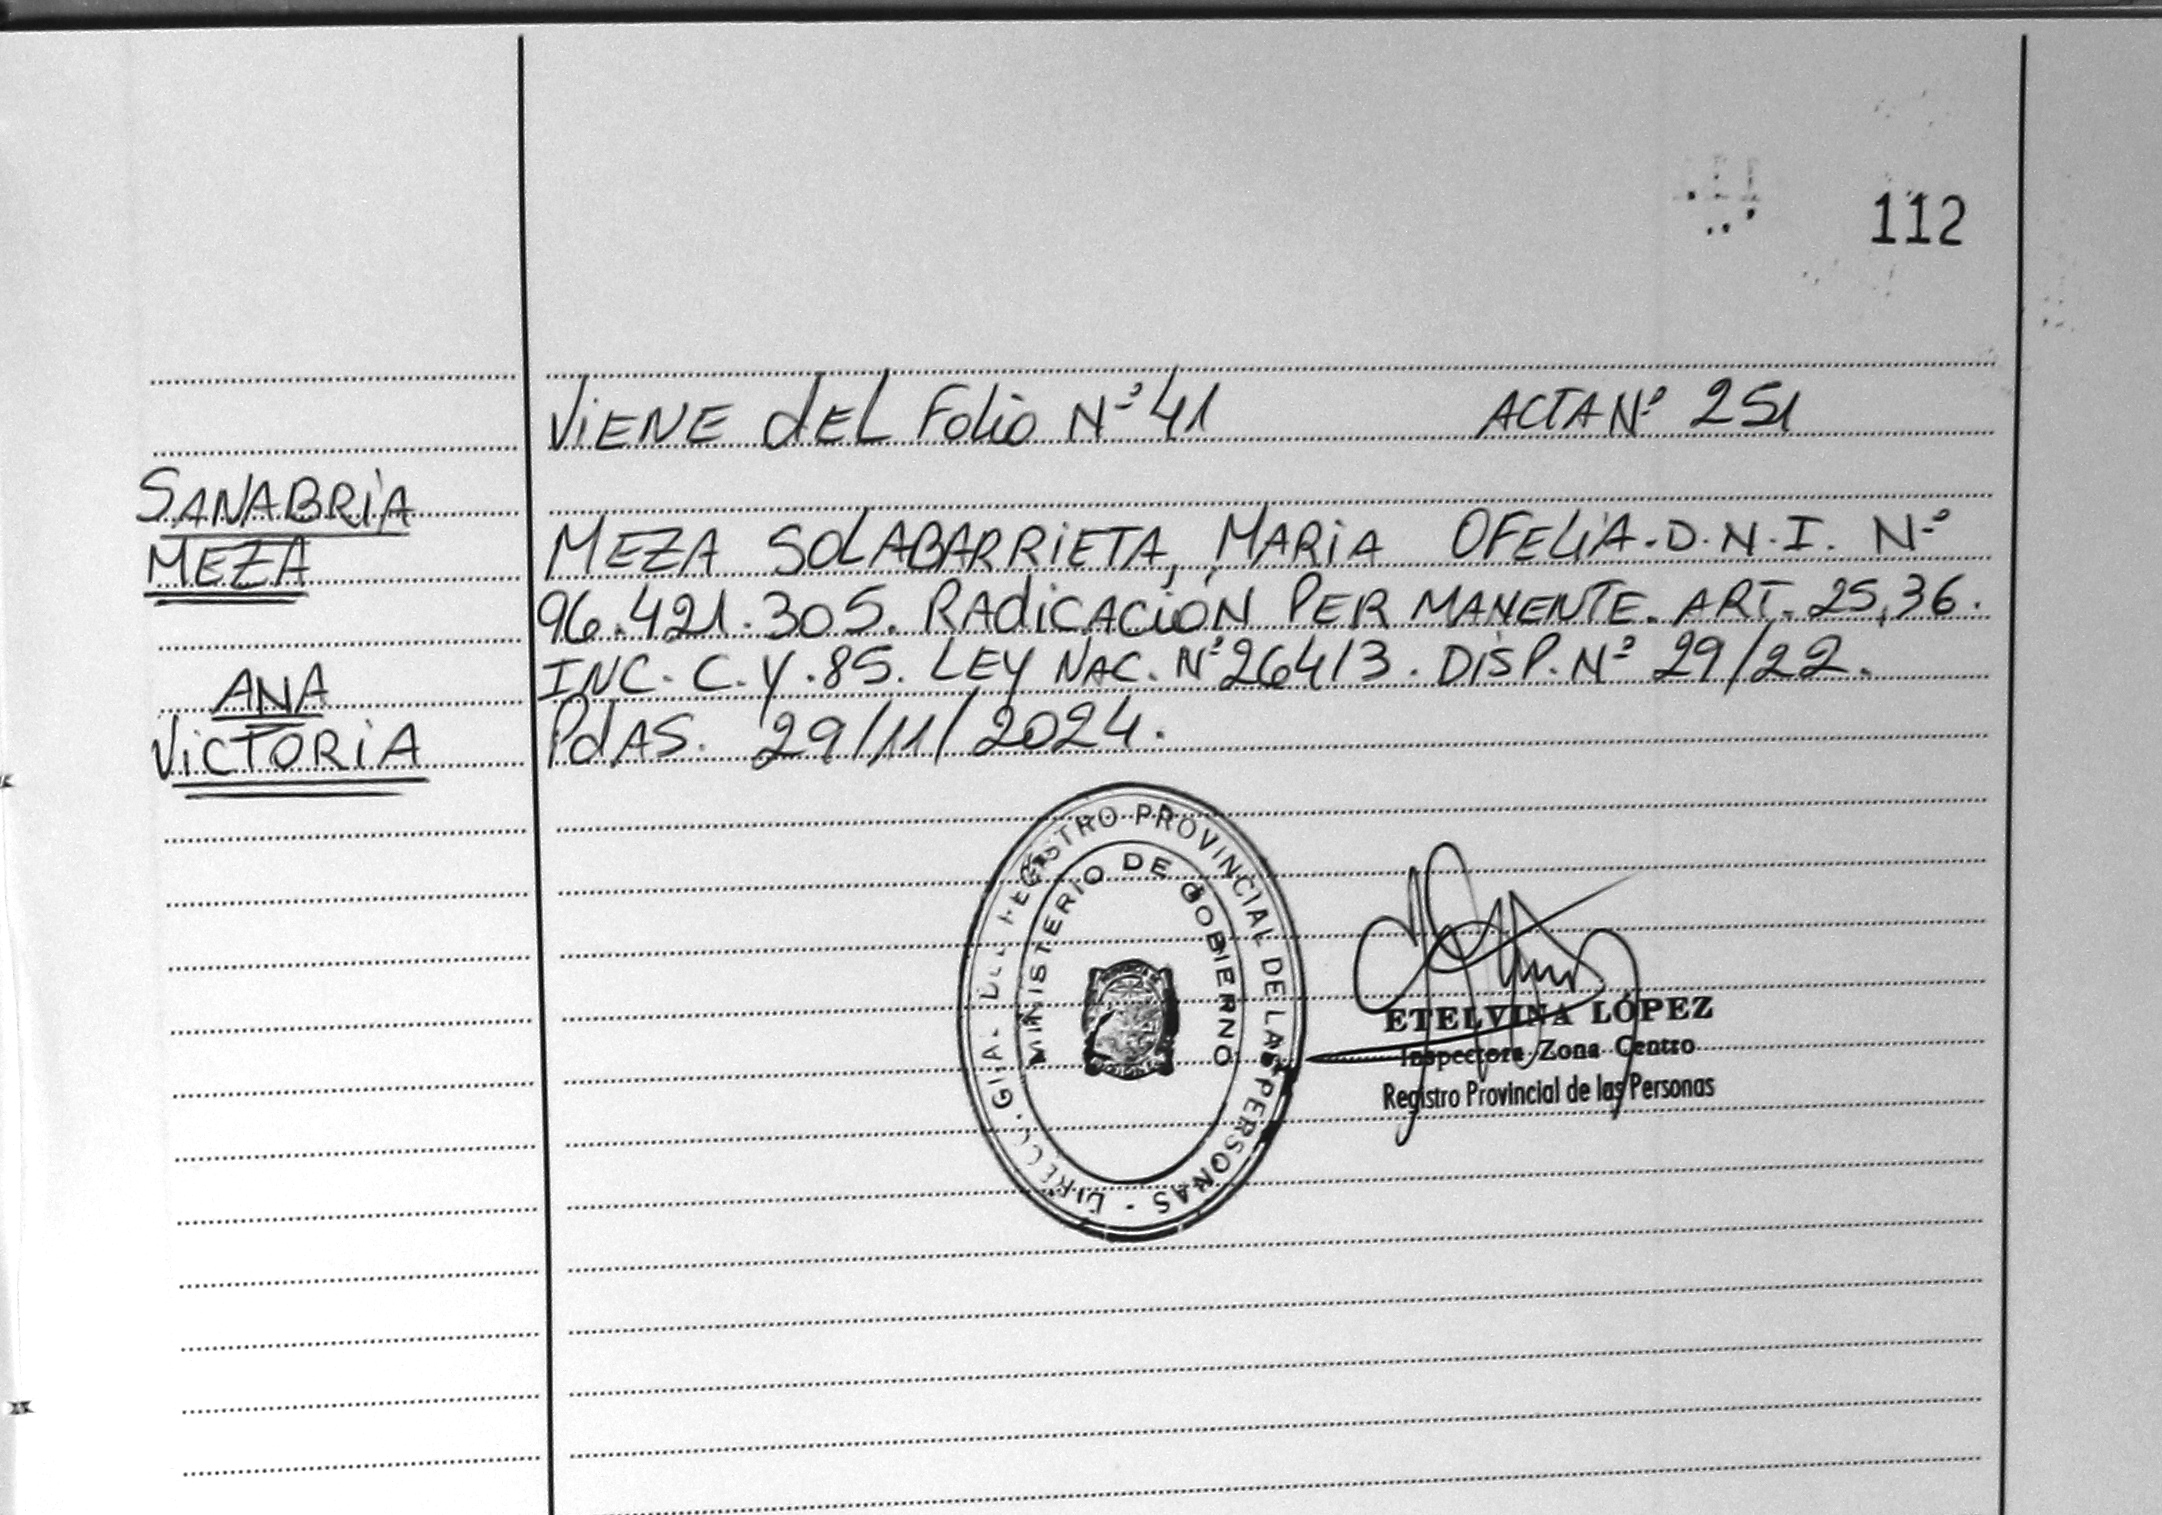 112
ViENE dEL FoLio Nº 41 ACTA Nº 251
SANABRiA
MEZA
ANA
ViCTORiA
MEZA SOLABARRiETA, MARiA OFELiA. D.N.I. Nº
96.421.305. RAdiCACiÓN PERMANENTE. ART. 25,36.
INC. C. Y. 85. LEY NAC. Nº 26413. DiSP. Nº 29/22.
PdAS. 29/11/2024.
REGISTRO PROVINCIAL DE LAS PERSONAS -
MINISTERIO DE GOBIERNO
ETELVINA LÓPEZ
Inspectora Zona Centro
Registro Provincial de las Personas